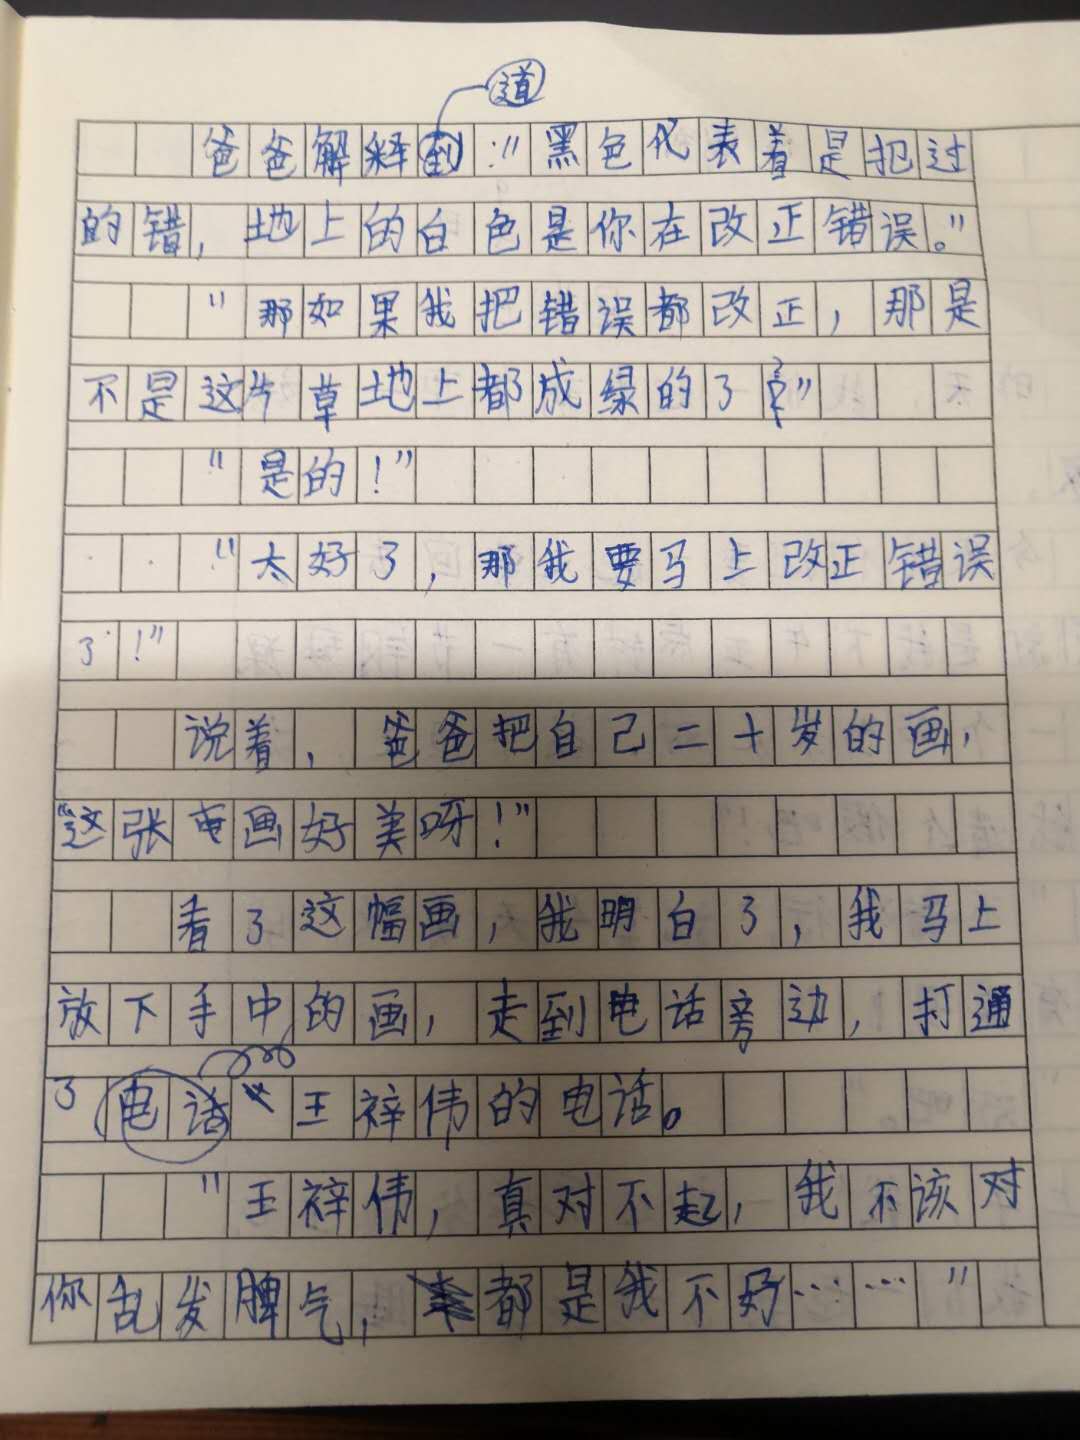 道
爸爸解释到："黑色代表着是犯过
的错，地上的白色是你在改正错误。"
"那如果我把错误都改正，那是
不是这片草地上都成绿的了？"
"是的！"
"太好了，那我要马上改正错误
了！"
说着，爸爸把自己二十岁的画，
"这张画好美呀！"
看了这幅画，我明白了，我马上
放下手中的画，走到电话旁边，打通
了电话王梓伟的电话。
"王梓伟，真对不起，我不该对
你乱发脾气，都是我不好……"